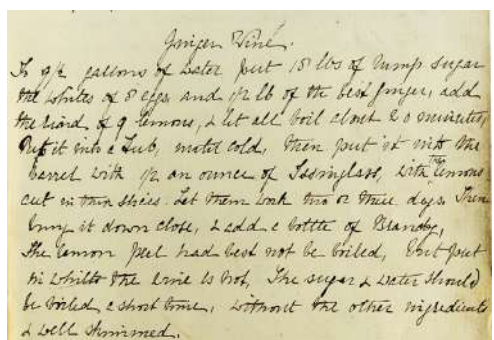 Ginger Wine.
To 9 1/2 gallons of Water put 18 lbs of lump sugar
the whites of 8 eggs and 1/2 lb of the best ginger, add
the rind of 9 lemons, & let all boil about 20 minutes,
Put it into a Tub, until cold, then put it into the
barrel with 1/2 an ounce of Issinglass, with the lemons
cut in thin slices. Let them work two or three days. Then
bung it down close, & add a bottle of Brandy,
The lemon peel had best not be boiled, but put
in whilst the wine is hot, The sugar & water should
be boiled a short time, without the other ingredients
& well skimmed.